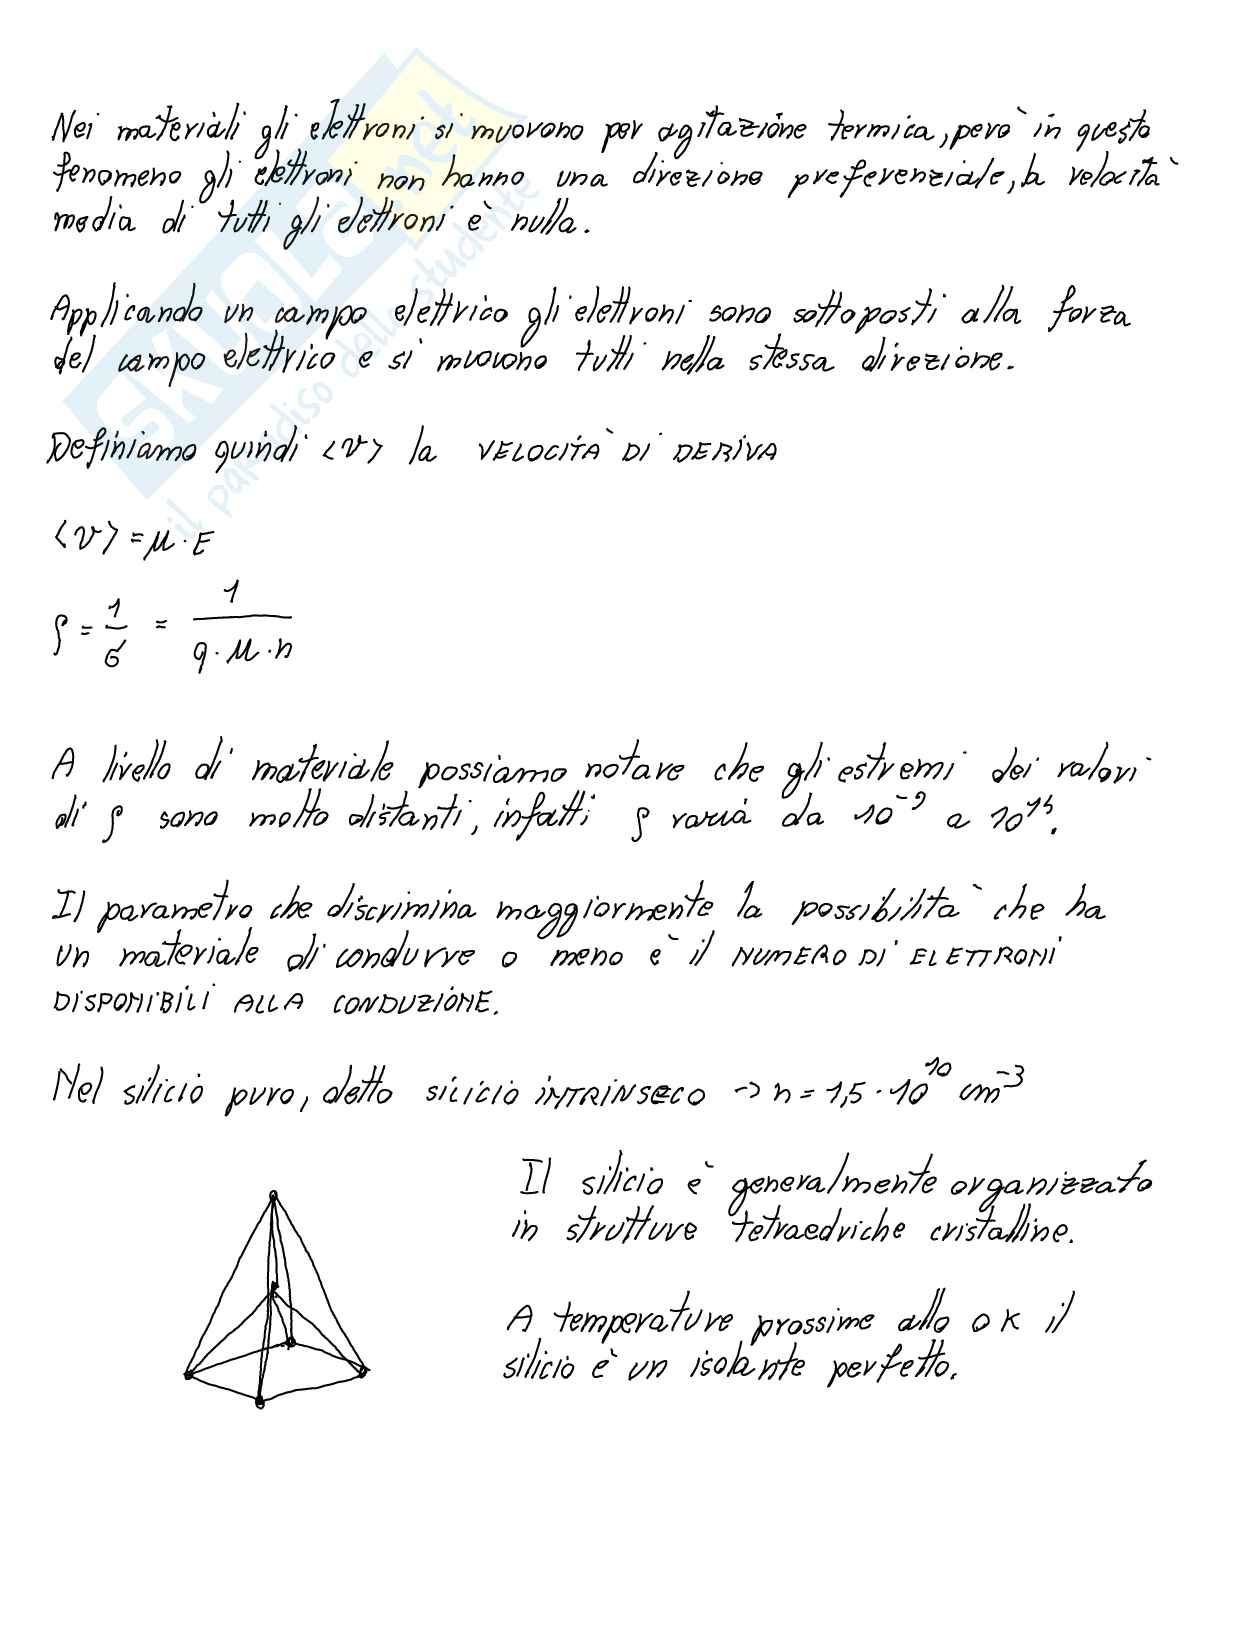 Nei materiali gli elettroni si muovono per agitazione termica, però in questo
fenomeno gli elettroni non hanno una direzione preferenziale, la velocità
media di tutti gli elettroni è nulla.
Applicando un campo elettrico gli elettroni sono sottoposti alla forza
del campo elettrico e si muovono tutti nella stessa direzione.
Definiamo quindi <v> la VELOCITÀ DI DERIVA
<v> = μ · E
ρ = 1/σ = 1/(q · μ · n)
A livello di materiale possiamo notare che gli estremi dei valori
di ρ sono molto distanti, infatti ρ varia da 10⁻⁹ a 10¹⁴.
Il parametro che discrimina maggiormente la possibilità che ha
un materiale di condurre o meno è il NUMERO DI ELETTRONI
DISPONIBILI ALLA CONDUZIONE.
Nel silicio puro, detto silicio INTRINSECO -> n = 1,5 · 10¹⁰ cm⁻³
Il silicio è generalmente organizzato
in strutture tetraedriche cristalline.
A temperature prossime allo 0 K il
silicio è un isolante perfetto.
SKUOLA.net
il paradiso dello studente